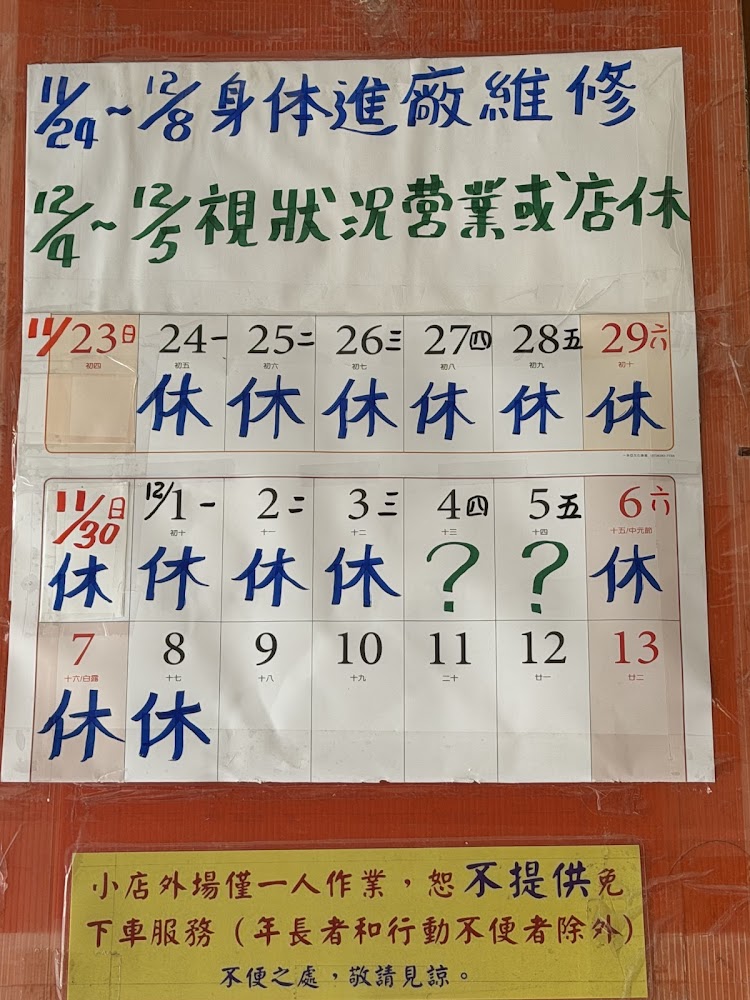 11/24~12/8身体進廠維修
12/4~12/5視狀況营業或店休
11/23日 24一 25二 26三 27四 28五 29六
初四 初五 初六 初七 初八 初九 初十
休 休 休 休 休 休
11/30日 12/1一 2二 3三 4四 5五 6六
初十 十一 十二 十三 十四 十五/中元節
休 休 休 休 ? ? 休
7 8 9 10 11 12 13
十六/白露 十七 十八 十九 二十 廿一 廿二
休 休
小店外場僅一人作業，恕不提供免
下車服務（年長者和行動不便者除外）
不便之處，敬請見諒。